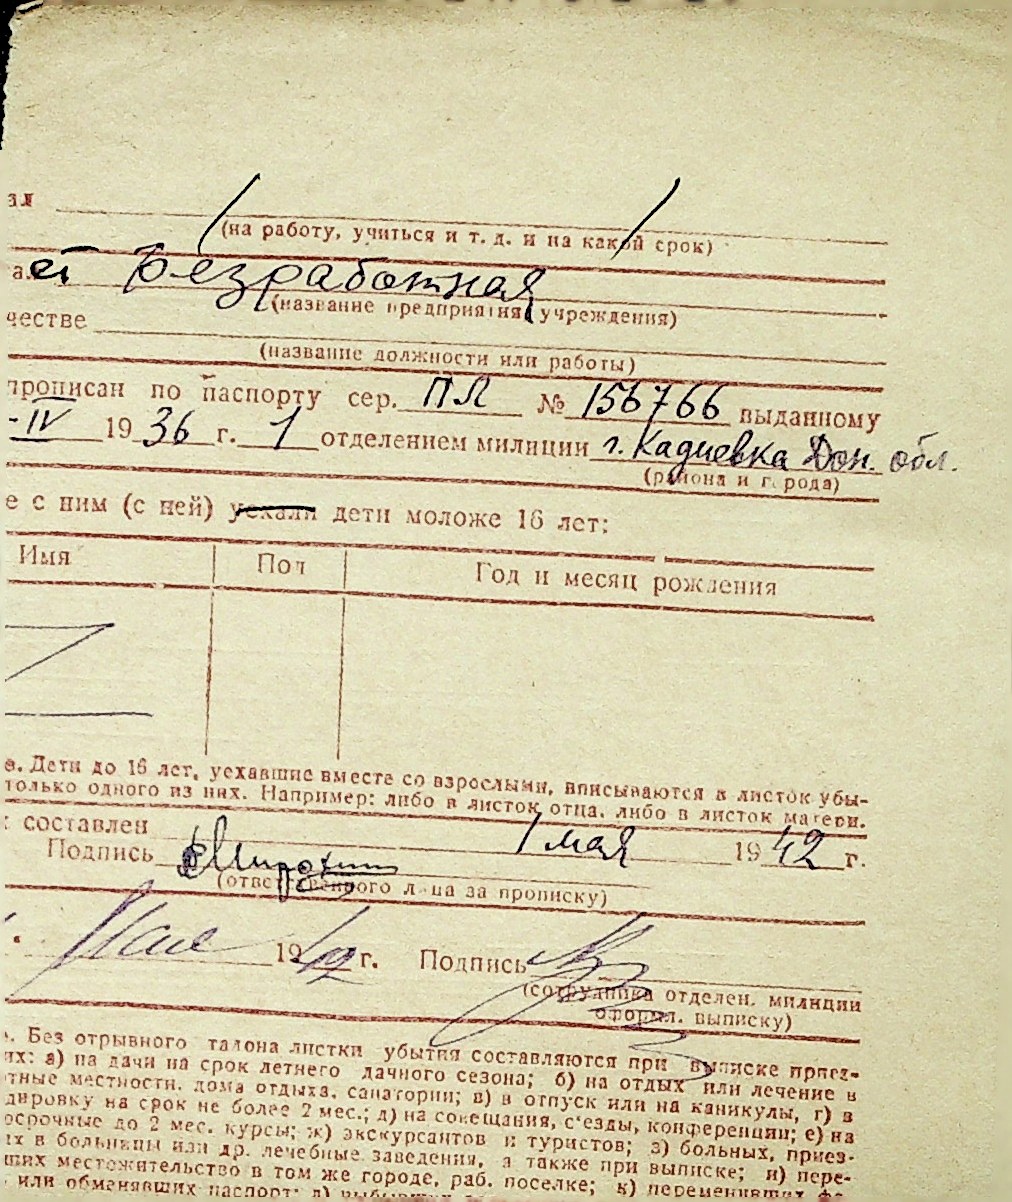 ал
(на работу, учиться и т. д. и на какой срок)
Безработная
(название предприятия, учреждения)
честве
(название должности или работы)
прописан по паспорту сер. ПЛ № 156766 выданному
-IV 1936 г. 1 отделением милиции г. Кадиевка Дон. обл.
(района и города)
е с ним (с ней) уехали дети моложе 16 лет:
Имя Пол Год и месяц рождения
е. Дети до 16 лет, уехавшие вместе со взрослыми, вписываются в листок убы-
только одного из них. Например: либо в листок отца, либо в листок матери.
составлен 1 мая 1942 г.
Подпись
(ответственного лица за прописку)
мая 1942 г. Подпись
(сотрудника отделен. милиции
оформ. выписку)
Без отрывного талона листки убытия составляются при выписке приез-
их: а) на дачи на срок летнего дачного сезона; б) на отдых или лечение в
тные местности, дома отдыха, санатории; в) в отпуск или на каникулы, г) в
дировку на срок не более 2 мес.; д) на совещания, с'езды, конференции; е) на
осрочные до 2 мес. курсы; ж) экскурсантов и туристов; з) больных, приез-
их в больницы или др. лечебные заведения, а также при выписке; и) пере-
ших местожительство в том же городе, раб. поселке; к) переменивших фа-
или обменявших паспорт; л) выбывших